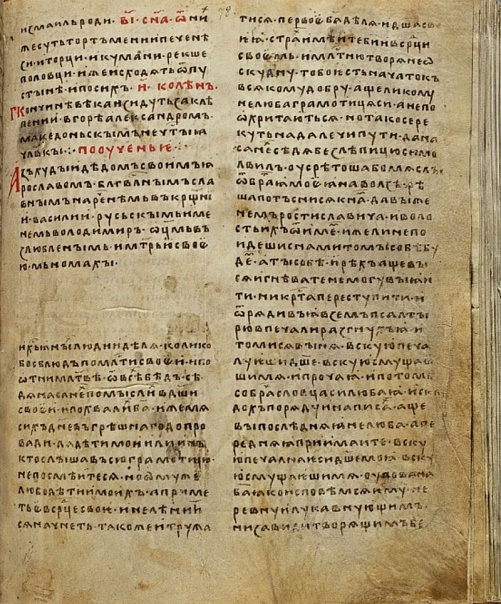 исмаильроди· ві҃· сн҃а· ѿни
жесуть тортъмени и печенѣ
зи· и торци· и кумани· рекше
половци· иже исходѧть ѿ пу
стынѣ· и по сихъ· и҃· колѣнъ
к кончинѣ вѣка изидуть заклѣ
пении в горѣ александромъ
македоньскымъ нечⷭ҇тыӕ
члв҃кы·:· поученье·:·
Азъ худыи дѣдомъ своимъ ӕ
рославомъ· блгв҃лнымъ сла
внымъ нарѣнѣмь въ крщ҃ни
и василии· русьскымь име
немь володимиръ· ѿц҃мь въ
злюбленымь· и мт҃рью своє
ю мьномахы·
и хⷭ҇ныⷯ людии дѣлѧ· колико
бо сблюдъ по млⷭ҇ти своеи· и по
ѿтни млт҃вѣ ѿ всѣⷯ бѣдъ· сѣ
дѧ на санеⷯ помыслиⷯ в дш҃и
своеи и похвалиⷯ б҃а· иже мѧ
сихъ днев грѣшнаго допро
вади· да дѣти мои· или инъ
кто слышавъ сю грамотицю
не посмѣитесѧ· но ѡмуже
любо дѣтии моихъ· а приме
ть е в срⷣце свое· и не лѣни
сѧ начнеть такоже и тружа
тисѧ· первоє б҃а дѣлѧ и дш҃а своє
ӕ· страⷯ имѣите б҃ии в срⷣци
своємь· и млⷭ҇тню творѧ неѡ
скудну· то бо єсть начатокъ
всѧкому добру· аще ли кому
не люба грамотицѧ си· а не по
ѡхритаютьсѧ· но тако се ре
куть· на далечи пути· да на
санеⷯ сѣдѧ безлѣпицю си мо
лвилъ· оусрѣтоша бо мѧ слы
ѿ браⷮӕ моеӕ на волзѣ· рѣ
ша потъснисѧ к наⷨ· да выже
немъ ростиславича· и воло
сть ихъ ѿимеⷨ· иже ли не по
идеши с нами· то мы собѣ бу
деⷨ· а ты собѣ· и рѣхъ аще вы
сѧ и гнѣваете· не могу вы ӕ и
ти· ни крⷭ҇та переступити· и
ѿрѧдивъ ӕ вземъ псалты
рю· в печали разгнухъ ӕ· и
то ми сѧ вынѧ· вскую печа
луєши дш҃е· вскую смущає
ши мѧ· и прочаӕ· и потомь
собраⷯ словца си любаӕ· и скла
дохъ по рѧду и написаⷯ· аще
вы послѣднѧӕ не люба· а пе
реднѧӕ приимаите· вску
ю печална еси дш҃е моӕ· вску
ю смущаєши мѧ· оуповаи на
б҃а ӕко исповѣмсѧ ему· не
ревнуи лукавнующимъ·
ни завиди творѧщимъ бе